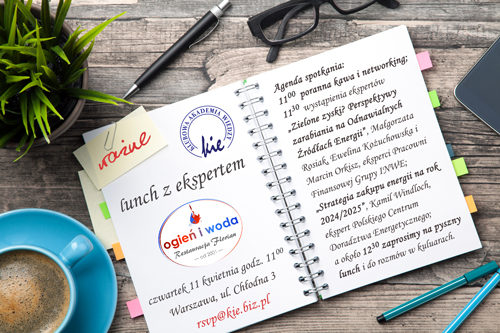 ważne
KLUBOWA AKADEMIA WIEDZY
kie
lunch z ekspertem
ogień i woda
Restauracja Florian
czwartek 11 kwietnia godz. 11⁰⁰
Warszawa, ul. Chłodna 3
rsvp@kie.biz.pl
Agenda spotkania:
11⁰⁰ poranna kawa i networking;
11³⁰ wystąpienia ekspertów
„Zielone zyski? Perspektywy
zarabiania na Odnawialnych
Źródłach Energii", Małgorzata
Rosiak, Ewelina Kożuchowska i
Marcin Orkisz, eksperci Pracowni
Finansowej Grupy INWE;
„Strategia zakupu energii na rok
2024/2025", Kamil Windloch,
ekspert Polskiego Centrum
Doradztwa Energetycznego;
a około 12³⁰ zaprosimy na pyszny
lunch i do rozmów w kuluarach.